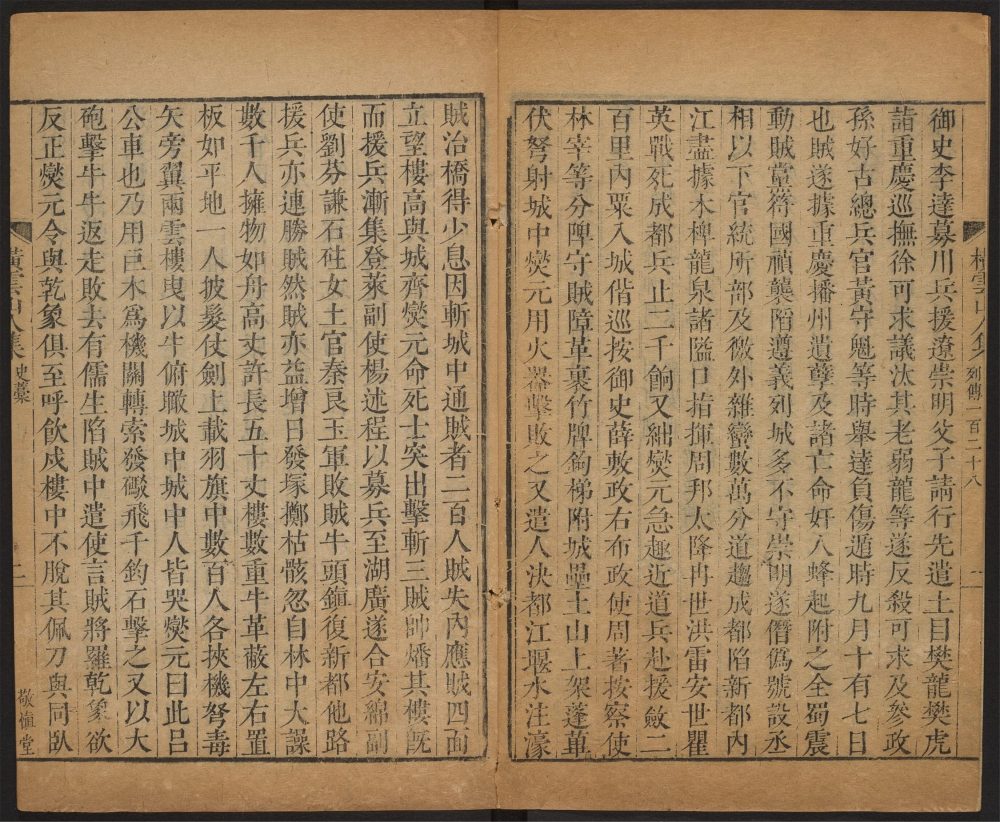 御史李達募川兵援遼崇明父子請行先遣土目樊龍樊虎
詣重慶巡撫徐可求議汰其老弱龍等遂反殺可求及參政
孫好古總兵官黃守魁等時舉達負傷遁時九月十有七日
也賊遂據重慶播州遺孽及諸亡命奸人蜂起附之全蜀震
動賊黨符國禎襲陷遵義列城多不守崇明遂僭偽號設丞
相以下官統所部及徼外雜蠻數萬分道趨成都陷新都內
江盡據木椑龍泉諸隘口指揮周邦太降冉世洪雷安世瞿
英戰死成都兵止二千餉又絀燮元急趣近道兵赴援斂二
百里內粟入城偕巡按御史薛敷政右布政使周著按察使
林宰等分陴守賊障革裹竹牌鉤梯附城壘土山上架蓬蓽
伏弩射城中燮元用火器擊敗之又遣人決都江堰水注濠
賊治橋得少息因斬城中通賊者二百人賊失內應賊四面
立望樓高與城齊燮元命死士突出擊斬三賊帥燔其樓既
而援兵漸集登萊副使楊述程以募兵至湖廣遂合安綿副
使劉芬謙石砫女土官秦良玉軍敗賊牛頭鎮復新都他路
援兵亦連勝賊然賊亦益增日發塚擲枯骸忽自林中大譟
數千人擁物如舟高丈許長五十丈樓數重牛革蔽左右置
板如平地一人披髮仗劍上載羽旗中數百人各挾機弩毒
矢旁翼兩雲樓曳以牛俯瞰城中城中人皆哭燮元曰此呂
公車也乃用巨木爲機關轉索發礮飛千鈞石擊之又以大
砲擊牛牛返走敗去有儒生陷賊中遣使言賊將羅乾象欲
反正燮元令與乾象俱至呼飲戍樓中不脫其佩刀與同臥
列傳一百二十八
史藁
二
敬愼堂